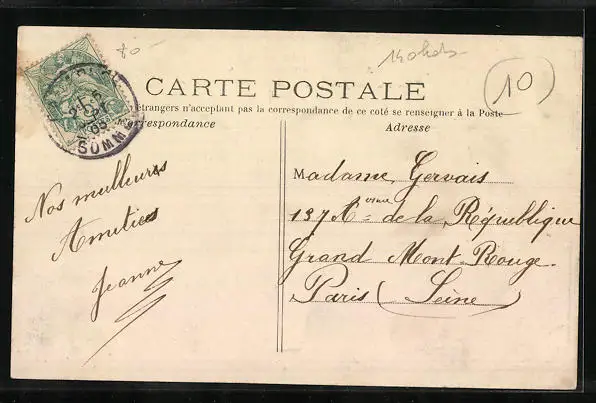 80-
(10)
CARTE POSTALE
étrangers n'acceptent pas la correspondance de ce coté se renseigner à la Poste
Correspondance
Adresse
SOMME
Nos meilleures
Amitiées
Jeanne
Madame Gervais
137 de la République
Grand Mont Rouge.
Paris (Seine)